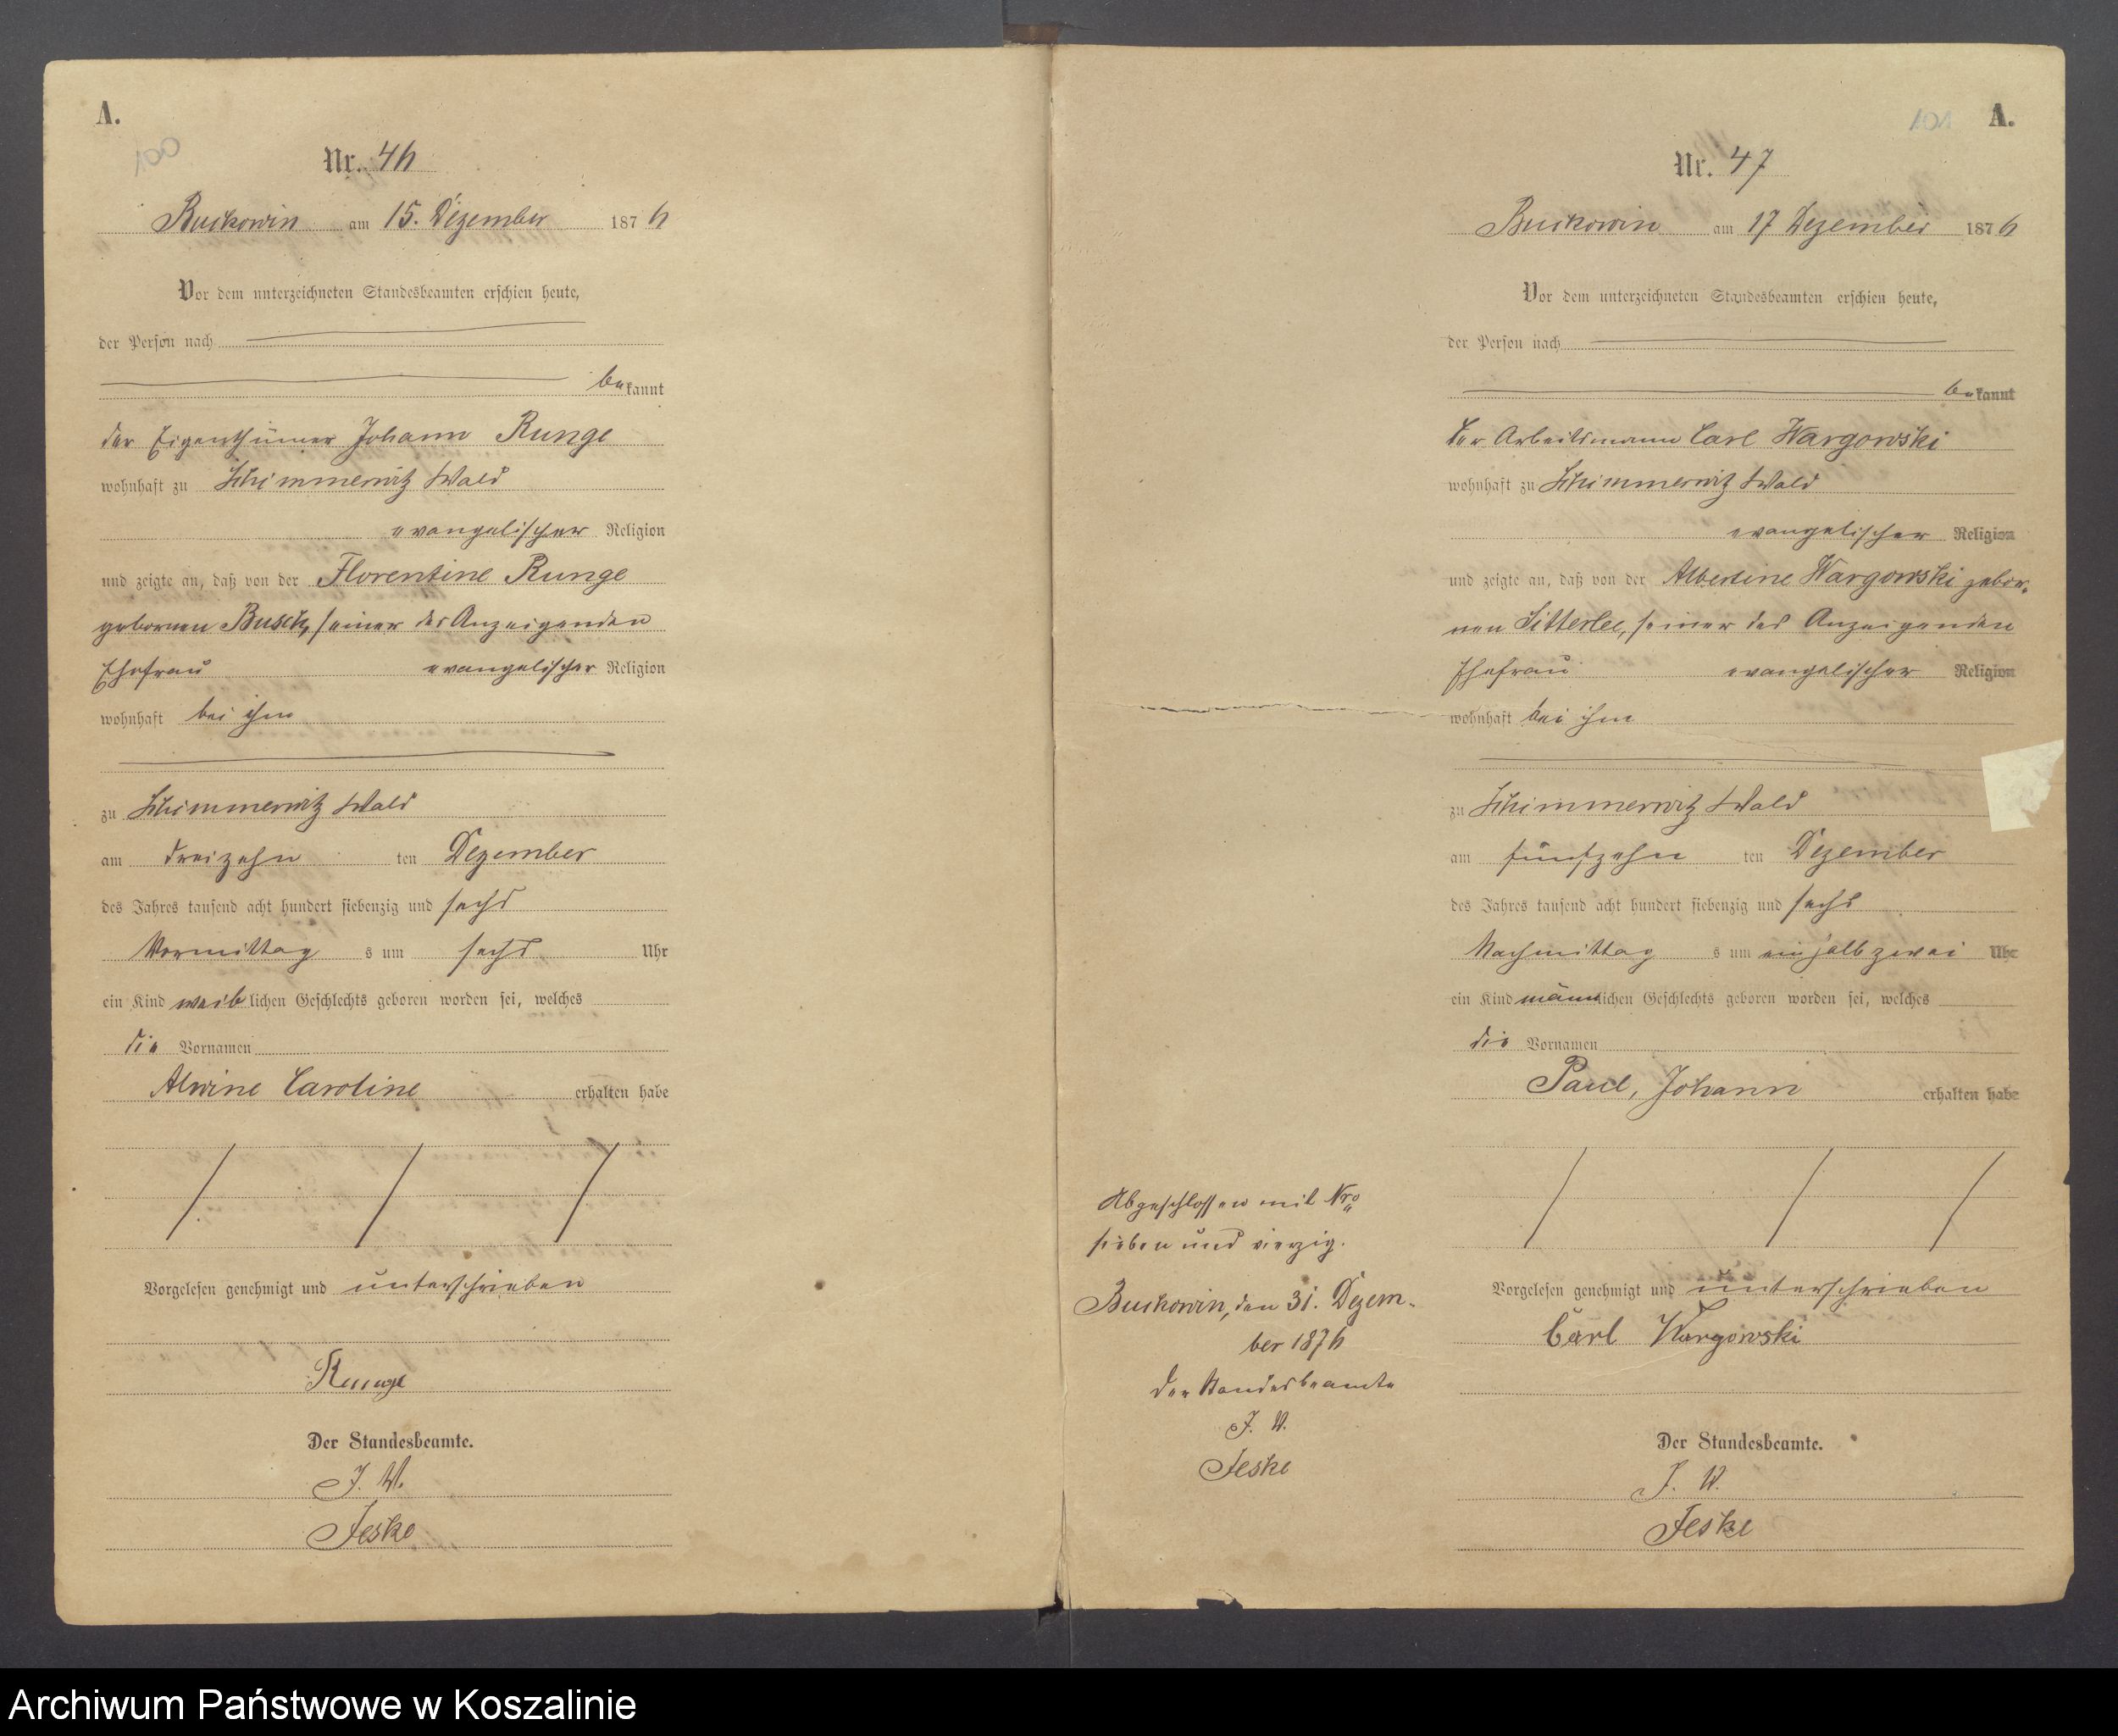 A.
100
Nr. 46
Buckowin am 15. Dezember 1876
Vor dem unterzeichneten Standesbeamten erschien heute,
der Person nach
bekannt
der Eigenthümer Johann Runge
wohnhaft zu Schimmerwitz Wald
evangelischer Religion
und zeigte an, daß von der Florentine Runge
gebornen Busch, seiner des Anzeigenden
Ehefrau evangelischer Religion
wohnhaft bei ihm
zu Schimmerwitz Wald
am dreizehn ten Dezember
des Jahres tausend acht hundert siebenzig und sechs
Vormittag s um sechs Uhr
ein Kind weiblichen Geschlechts geboren worden sei, welches
die Vornamen
Alwine Caroline erhalten habe
Vorgelesen genehmigt und unterschrieben
Runge
Der Standesbeamte.
J. V.
Jeske
101 A.
Nr. 47
Buckowin am 17 Dezember 1876
Vor dem unterzeichneten Standesbeamten erschien heute,
der Person nach
bekannt
der Arbeitsmann Carl Wargowski
wohnhaft zu Schimmerwitz Wald
evangelischer Religion
und zeigte an, daß von der Albertine Wargowski gebor-
nen seiner des Anzeigenden
Ehefrau evangelischer Religion
wohnhaft bei ihm
zu Schimmerwitz Wald
am fünfzehn ten Dezember
des Jahres tausend acht hundert siebenzig und sechs
Nachmittag s um einhalb zwei Uhr
ein Kind männlichen Geschlechts geboren worden sei, welches
die Vornamen
Paul, Johann erhalten habe
Vorgelesen genehmigt und unterschrieben
Carl Wargowski
Der Standesbeamte.
J. V.
Jeske
Abgeschlossen mit Nro
sieben und vierzig.
Buckowin, den 31. Dezem-
ber 1876
Der Standesbeamte
J. V.
Jeske
Archiwum Państwowe w Koszalinie